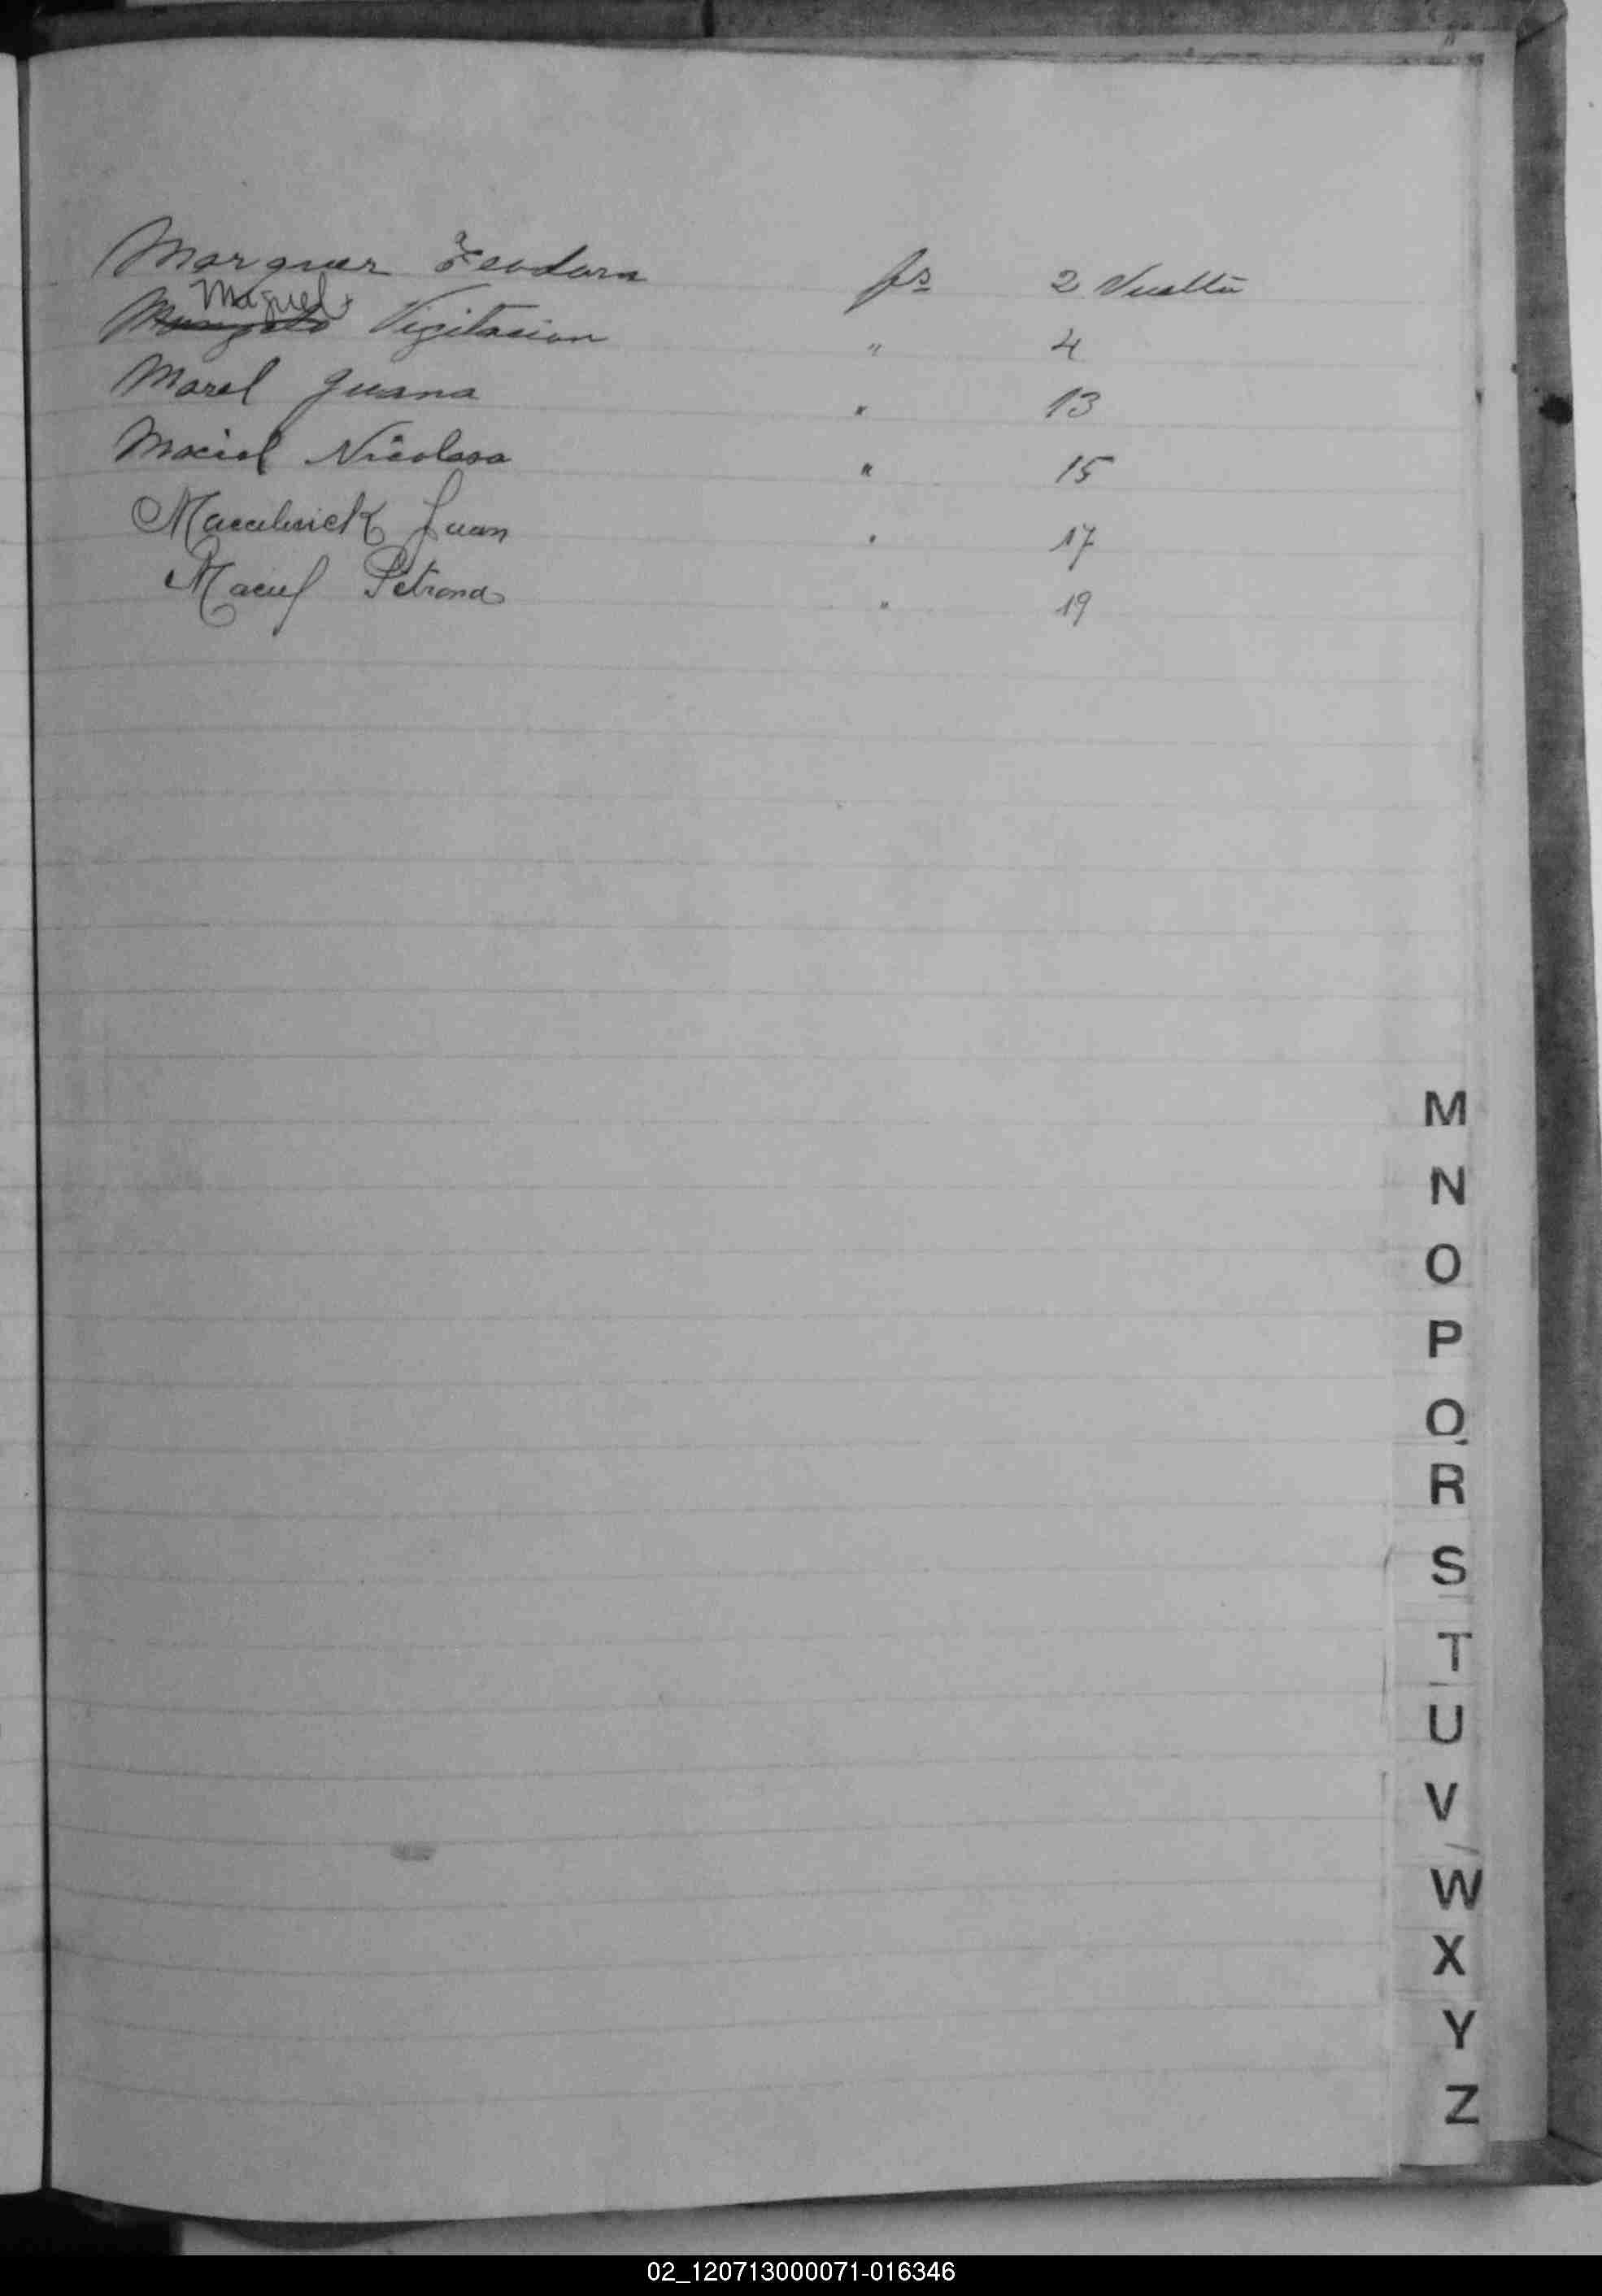 Marquez Teodora fs 2 Vuelta
Miguel
Vigitacion " 4
Marel Juana " 13
Maciel Nicolasa " 15
Juan " 17
Petrona " 19
M
N
O
P
Q
R
S
T
U
V
W
X
Y
Z
02_120713000071-016346